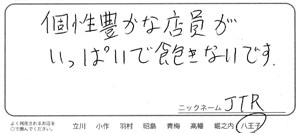 個性豊かな店員が
いっぱいで飽きないです.
ニックネーム JTR
よく利用されるお店を
○で囲んでください。
立川 小作 羽村 昭島 青梅 高幡 堀之内 八王子